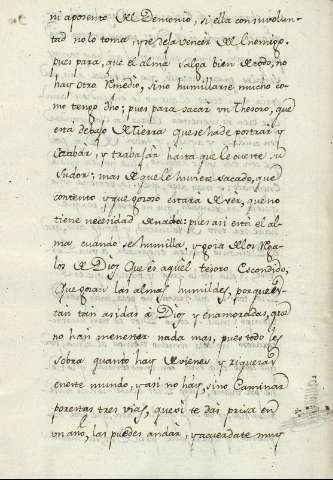 ni aposento del Demonio, si ella con su volun-
tad no lo toma, y se deja vencer del Enemigo.
pues para, que el alma salga bien de todo, no
hay otro Remedio, sino humillarse mucho co-
mo tengo dho; pues para sacar un Thesoro, que
está debajo de tierra que se ha de postrar y
Cabar, y trabajar hasta que le cueste su
sudor; mas de que le huviere sacado, que
contento y que gososo estara de ver, que no
tiene necesidad de nada: pues asi está el al-
ma cuando se humilla, y goza de los Rega-
los de Dios que es aquel tesoro Escondido,
Que gozan las almas humildes, porque es-
tan tan asidas a Dios y enamoradas, que
no han menester nada mas, pues todo les
sobra quanto hay de vienes y riquezas
en este mundo, y asi no hay, sino Caminar
por estas tres vias, que si te das prisa en
un año, las puedes andar, y acuerdate muy